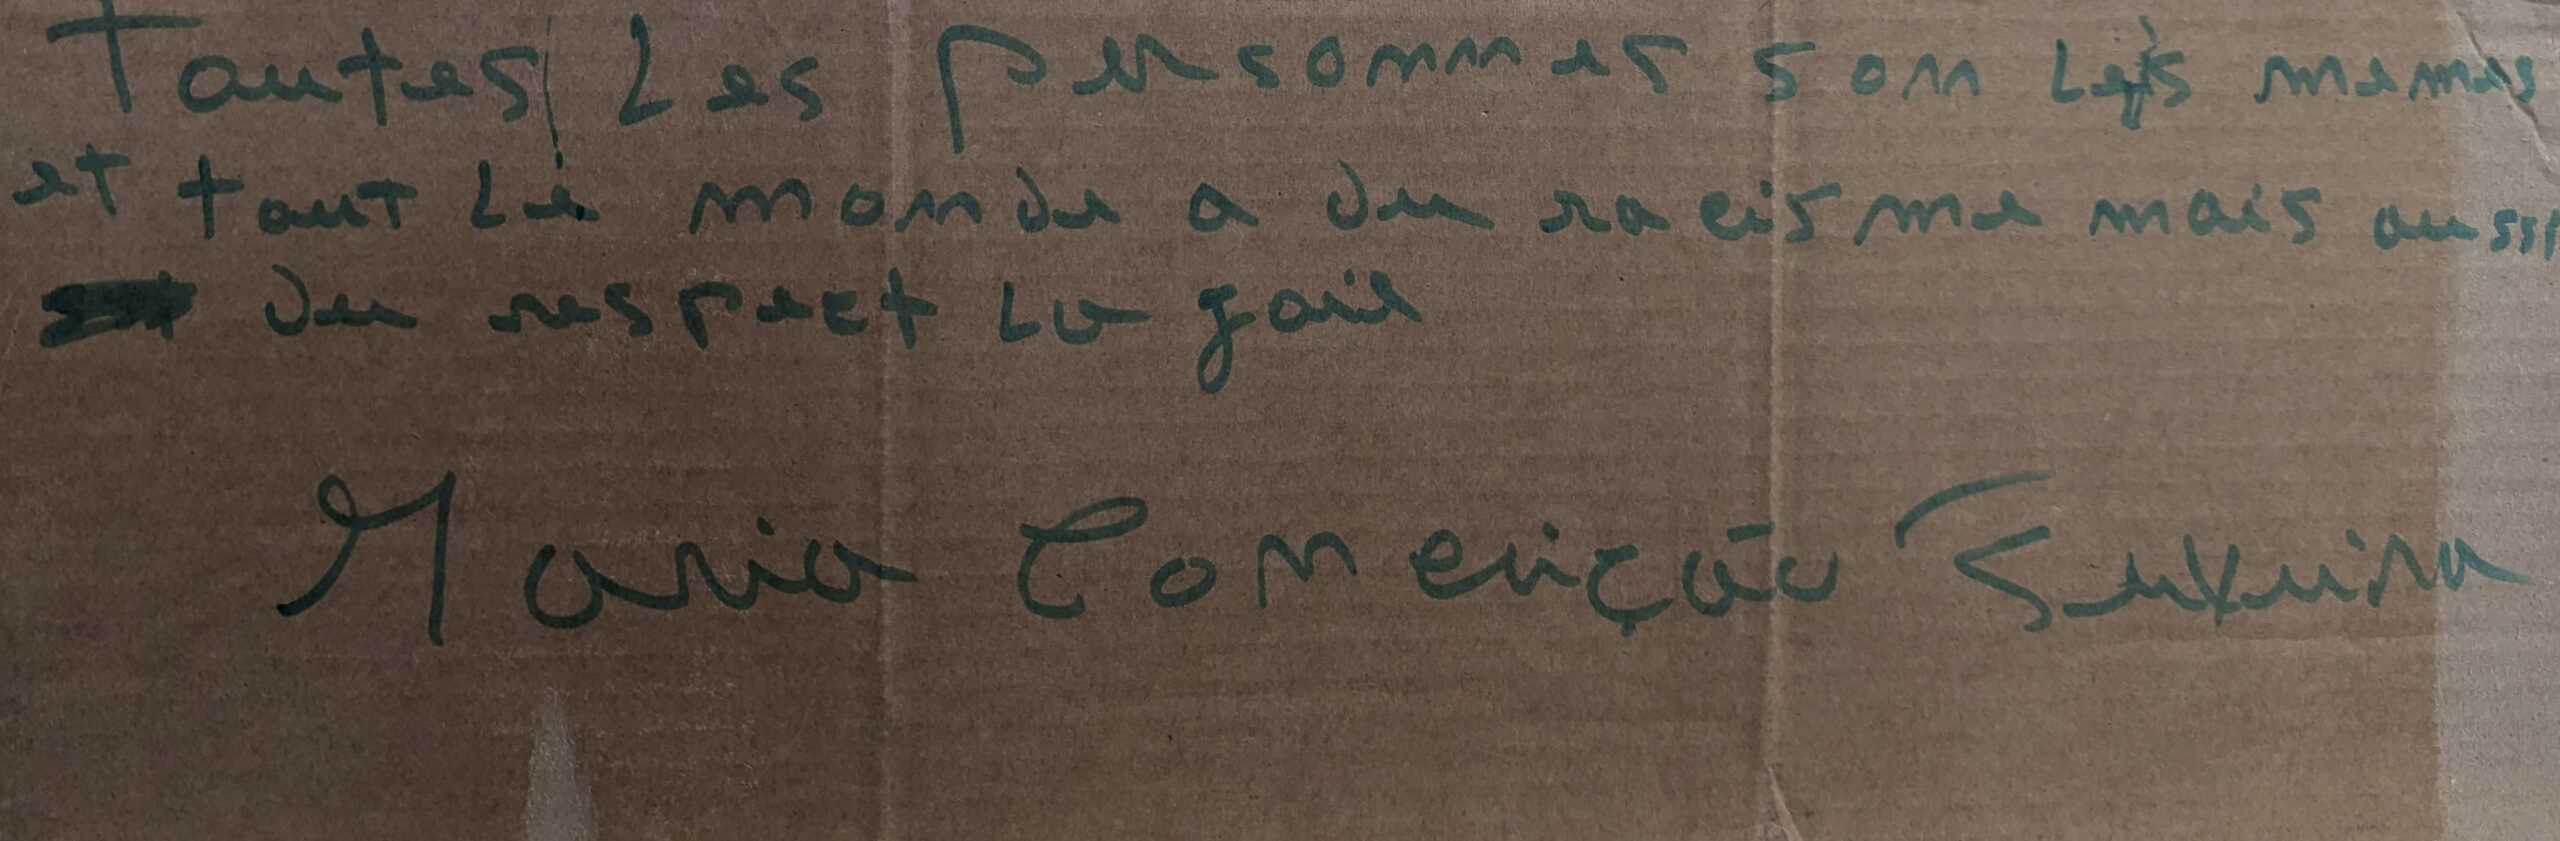 Toutes les personnes son les memes
et tout le monde a du racisme mais aussi
du respect la
Maria Conceição Teixeira